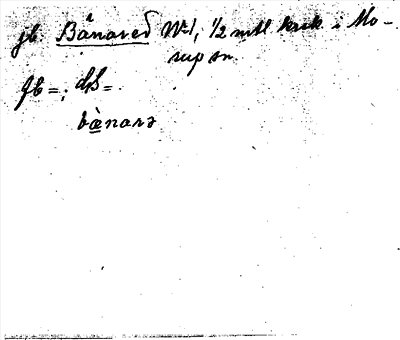 gb. Bånared No 1, 1/2 mtl krk i Mo-
rup sn.
gb =; ds =
bæ̀narə